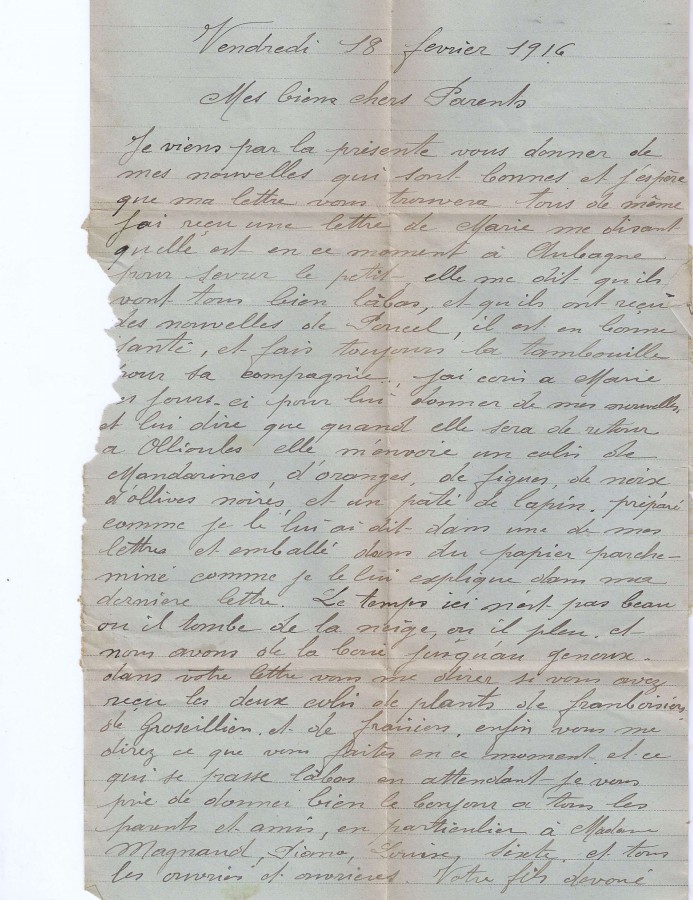 Vendredi 18 fevrier 1916
Mes biens chers Parents
Je viens par la présente vous donner de
mes nouvelles qui sont bonnes et j'éspère
que ma lettre vous trouvera tous de même
J'ai reçu une lettre de Marie me disant
qu'elle est en ce moment à Aubagne
pour sevrer le petit, elle me dit qu'ils
vont tous bien làbas, et qu'ils ont reçu
des nouvelles de, il est en bonne
santé, et fais toujours la tambouille
pour sa compagnie, j'ai ecris a Marie
es jours-ci pour lui donner de mes nouvelles,
et lui dire que quand elle sera de retour
a Ollioules elle m'envoie un colis de
Mandarines, d'oranges, de figues, de noix
d'ollives noires, et un paté de lapin. préparé
comme je le lui ai dit dans une de mes
lettres et emballé dans du papier parche-
miné comme je le lui explique dans ma
derniere lettre. Le temps ici n'est pas beau
ou il tombe de la neige, ou il pleu. et
nous avons de la boue jusqu'au genoux.
dans votre lettre vous me direz si vous avez
reçu les deux colis de plants de framboisiers
de Groseillien et de fraisiers, enfin vous me
direz ce que vous faites en ce moment et ce
qui se passe làbas en attendant je vous
prie de donner bien le bonjour a tous les
parents et amis, en particulier à Madame
Magnaud, Louise, Sixte, et tous
les ouvries et ouvrieres. Votre fils devoué